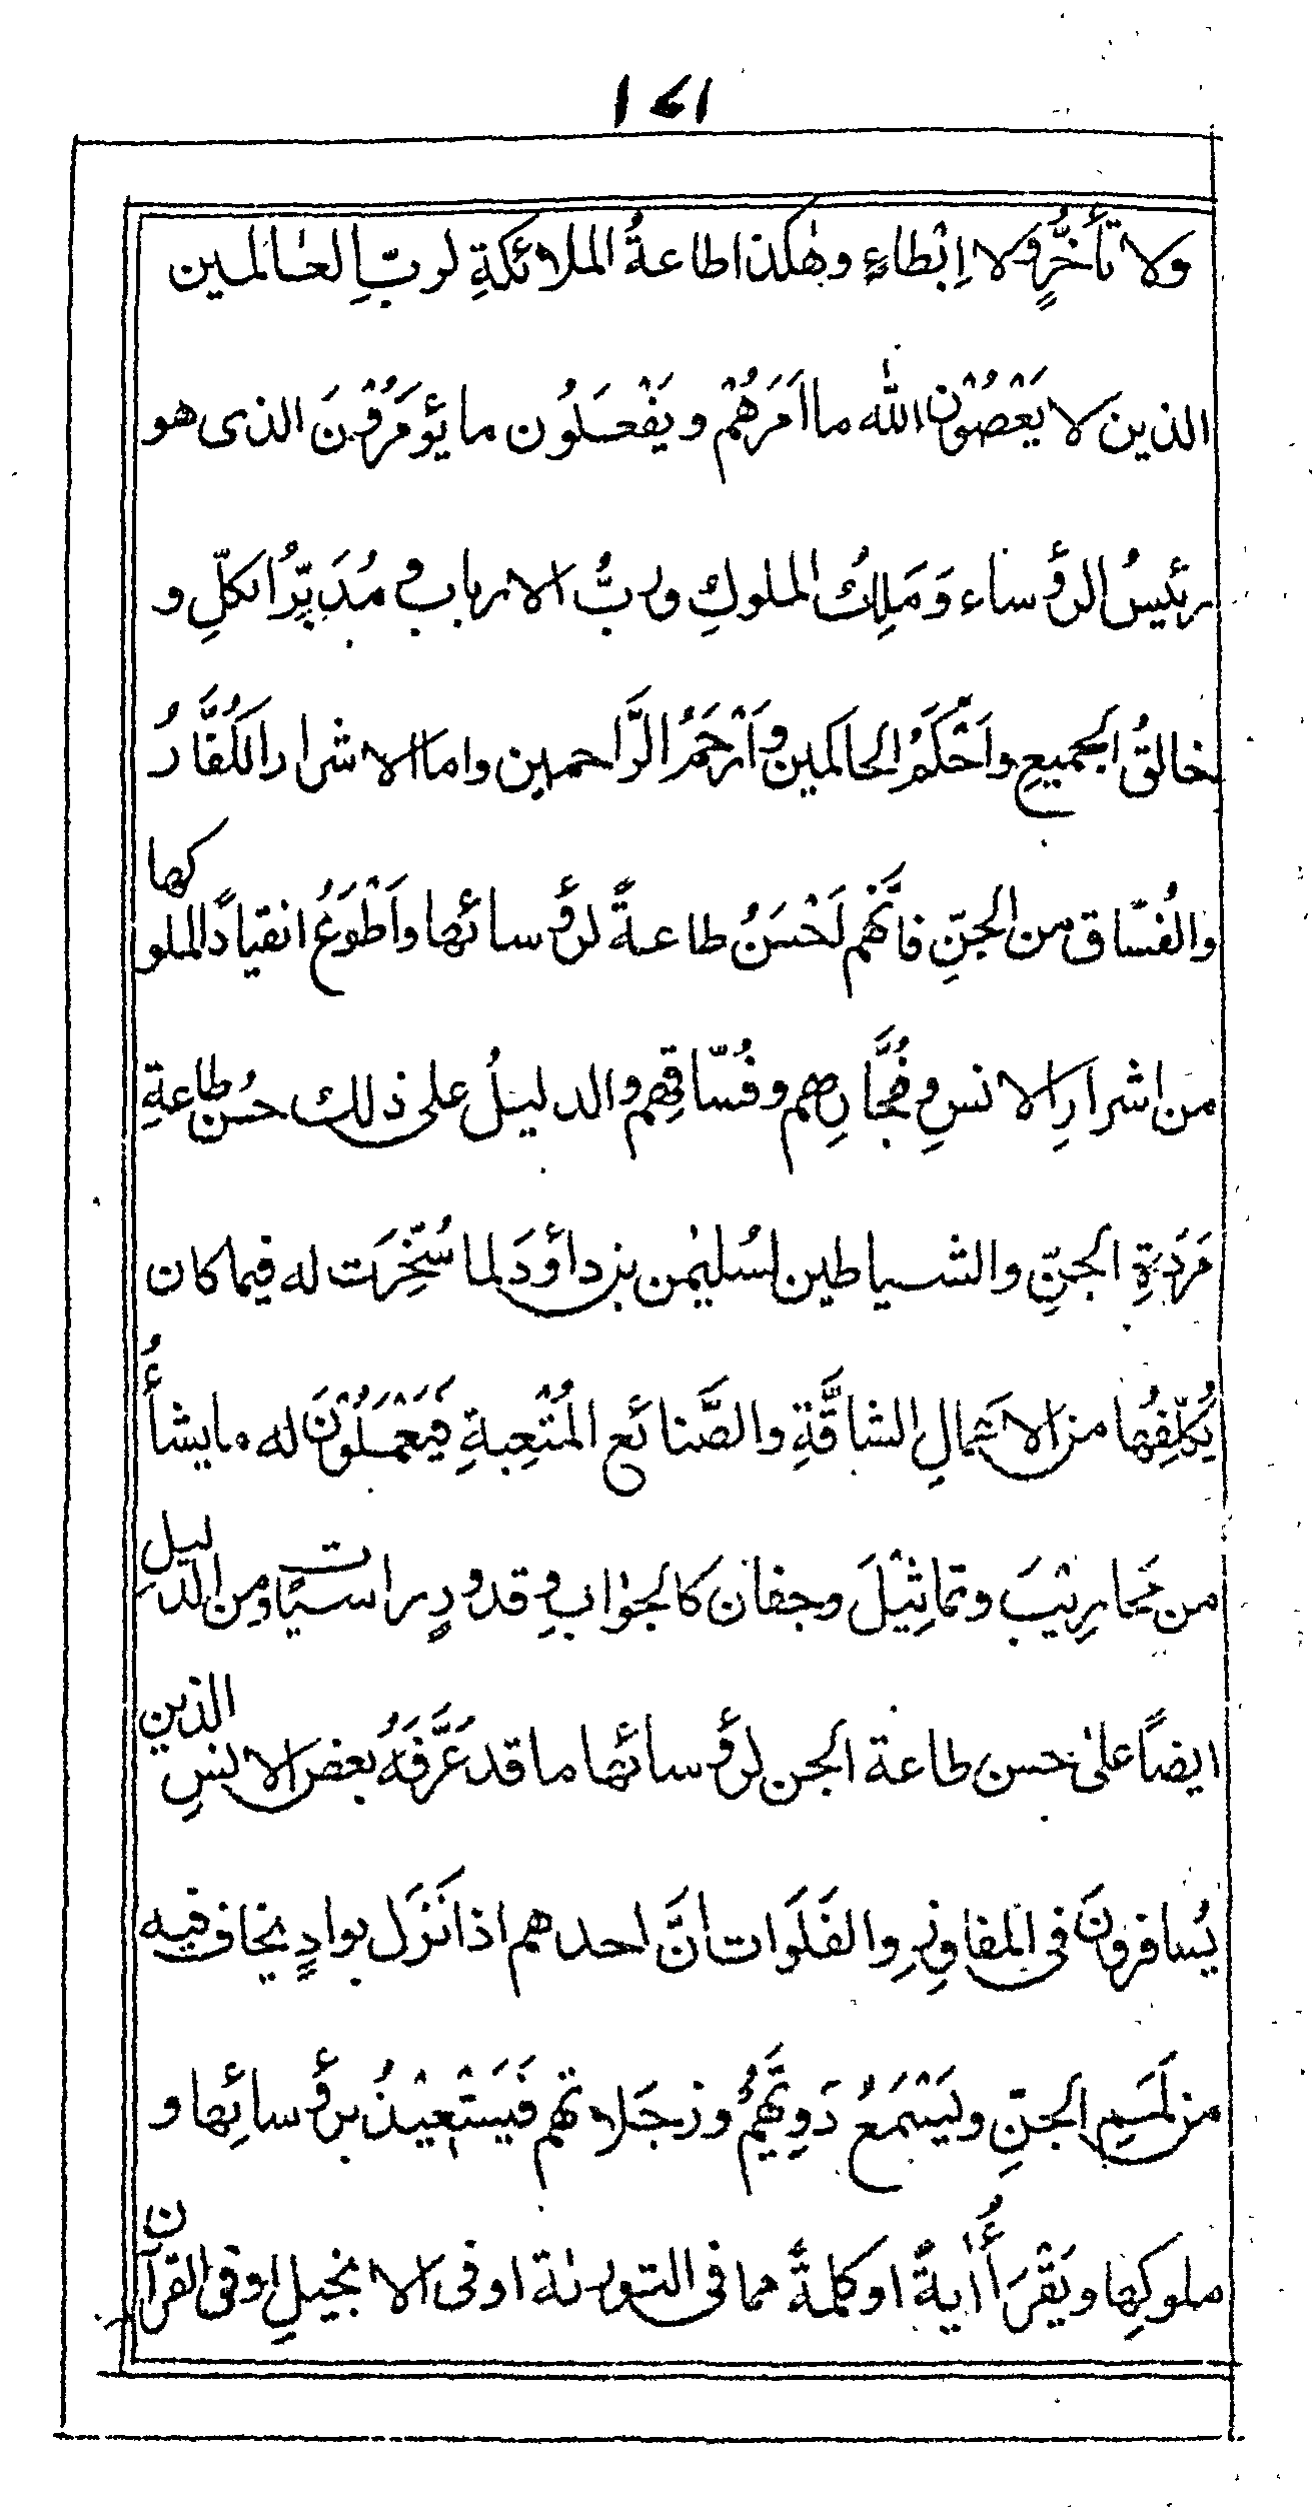 ۱۷۱
ولا تأخُّرٍ ولا اِبْطاءٍ وهٰكذا طاعةُ الملائكةِ لربِّ العٰالمين
الذين لا يَعْصُوْن الله ما اَمَرَهُمْ ويَفْعَلُون ما يؤمَرُوْنَ الذى هو
رئيسُ الرؤساء وَمَلِكُ الملوكِ وربُّ الارباب و مُدَبِّرُ الكلِّ و
خالقُ الجميعِ واَحْكَمُ الحاكمين واَرْحَمُ الرَّاحمين واما الاشرار الكُفَّارُ
والفُسّاق من الجنِّ فانَّهم لَحْسَنُ طاعةً لرؤسائها واَطْوَعُ انقيادًا لملوكها
من اشرارِ الانسِ وفُجَّارِهم وفُسّاقِهم والدليلُ على ذلك حُسن طاعةِ
مَرَدَةِ الجنِّ والشياطين لسُليمٰن بن داؤدَ لما سُخِّرَت له فيما كان
يُكلِّفُها من الاعمالِ الشاقَّةِ والصَّنائع المُتْعِبةِ فَيَعْمَلُوْنَ له ما يشأُ
من مَحارِيْبَ وتماثِيْلَ وجفان كالجوٰابِ وقدورٍ راسيٰاتٍ ومن الدليلِ
ايضاً علىٰ حسن طاعة الجن لرؤسائها ما قد عَرَّفَهُ بعض الانسِ الذين
يُسافرونَ فى المفاوزِ والفَلَوات انَّ احدهم اذا نَزَل بوادٍ يخاف فيه
من لَمَسِ الجنِّ ويَسْمَعُ دَوِيَّهُمْ وزجَلاتهم فَيَسْتَعِيْذُ برؤسائِها و
ملوكِها ويَقْرَأُ اٰيةً او كلمةً مما فى التورٰىة او فى الانجيلِ او فى القرآن